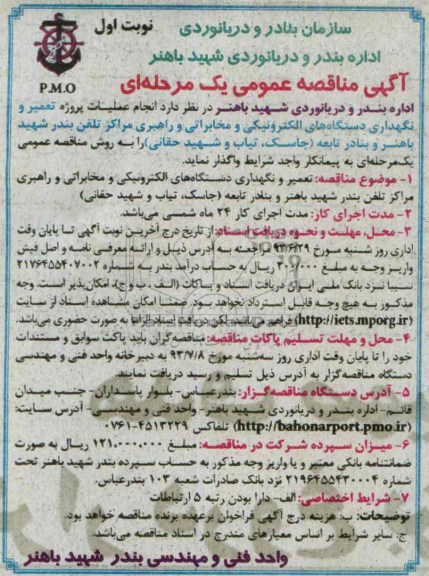 سازمان بنادر و دریانوردی
نوبت اول
اداره بندر و دریانوردی شهید باهنر
P.M.O
آگهی مناقصه عمومی یک مرحله‌ای
اداره بندر و دریانوردی شهید باهنر در نظر دارد انجام عملیات پروژه تعمیر و
نگهداری دستگاه‌های الکترونیکی و مخابراتی و راهبری مراکز تلفن بندر شهید
باهنر و بنادر تابعه (جاسک، تیاب و شهید حقانی) را به روش مناقصه عمومی
یک‌مرحله‌ای به پیمانکار واجد شرایط واگذار نماید.
۱- موضوع مناقصه: تعمیر و نگهداری دستگاه‌های الکترونیکی و مخابراتی و راهبری
مراکز تلفن بندر شهید باهنر و بنادر تابعه (جاسک، تیاب و شهید حقانی)
۲- مدت اجرای کار: مدت اجرای کار ۲۴ ماه شمسی می‌باشد.
۳- محل، مهلت و نحوه دریافت اسناد: از تاریخ درج آخرین نوبت آگهی تا پایان وقت
اداری روز شنبه مورخ ۹۳/۶/۲۹ مراجعه به آدرس ذیل و ارائه معرفی نامه و اصل فیش
واریز وجه به مبلغ ۳۰۰/۰۰۰ ریال به حساب درآمد بندر به شماره ۲۱۷۶۴۵۵۴۰۷۰۰۲
سیبا نزد بانک ملی ایران دریافت اسناد و پاکات (الف، ب و ج)، امکان‌پذیر است. وجه
مذکور به هیچ وجه قابل استرداد نخواهد بود. ضمنا امکان مشاهده اسناد از سایت
(http://iets.mporg.ir) فراهم می‌باشد. لکن دریافت اسناد الزاما به صورت حضوری می‌باشد.
۴- محل و مهلت تسلیم پاکات مناقصه: مناقصه‌گران باید پاکت سوابق و مستندات
خود را تا پایان وقت اداری روز سه‌شنبه مورخ ۹۳/۷/۸ به دبیرخانه واحد فنی و مهندسی
دستگاه مناقصه‌گزار به آدرس ذیل تسلیم و رسید دریافت نمایند.
۵- آدرس دستگاه مناقصه‌گزار: بندرعباس- بلوار پاسداران- جنب میدان
قائم- اداره بندر و دریانوردی شهید باهنر- واحد فنی و مهندسی- آدرس سایت:
(http://bahonarport.pmo.ir) تلفاکس ۴۵۱۳۲۲۹-۰۷۶۱
۶- میزان سپرده شرکت در مناقصه: مبلغ ۱۲۱،۰۰۰،۰۰۰ ریال به صورت
ضمانتنامه بانکی معتبر و یا واریز وجه مذکور به حساب سپرده بندر شهید باهنر تحت
شماره ۲۱۹۶۴۵۵۴۳۰۰۰۴ نزد بانک صادرات شعبه ۱۰۳ بندرعباس.
۷- شرایط اختصاصی: الف- دارا بودن رتبه ۵ ارتباطات
توضیحات: ب: هزینه درج آگهی فراخوان برعهده برنده مناقصه خواهد بود.
ج: سایر شرایط بر اساس معیارهای مندرج در اسناد مناقصه می‌باشد.
واحد فنی و مهندسی بندر شهید باهنر